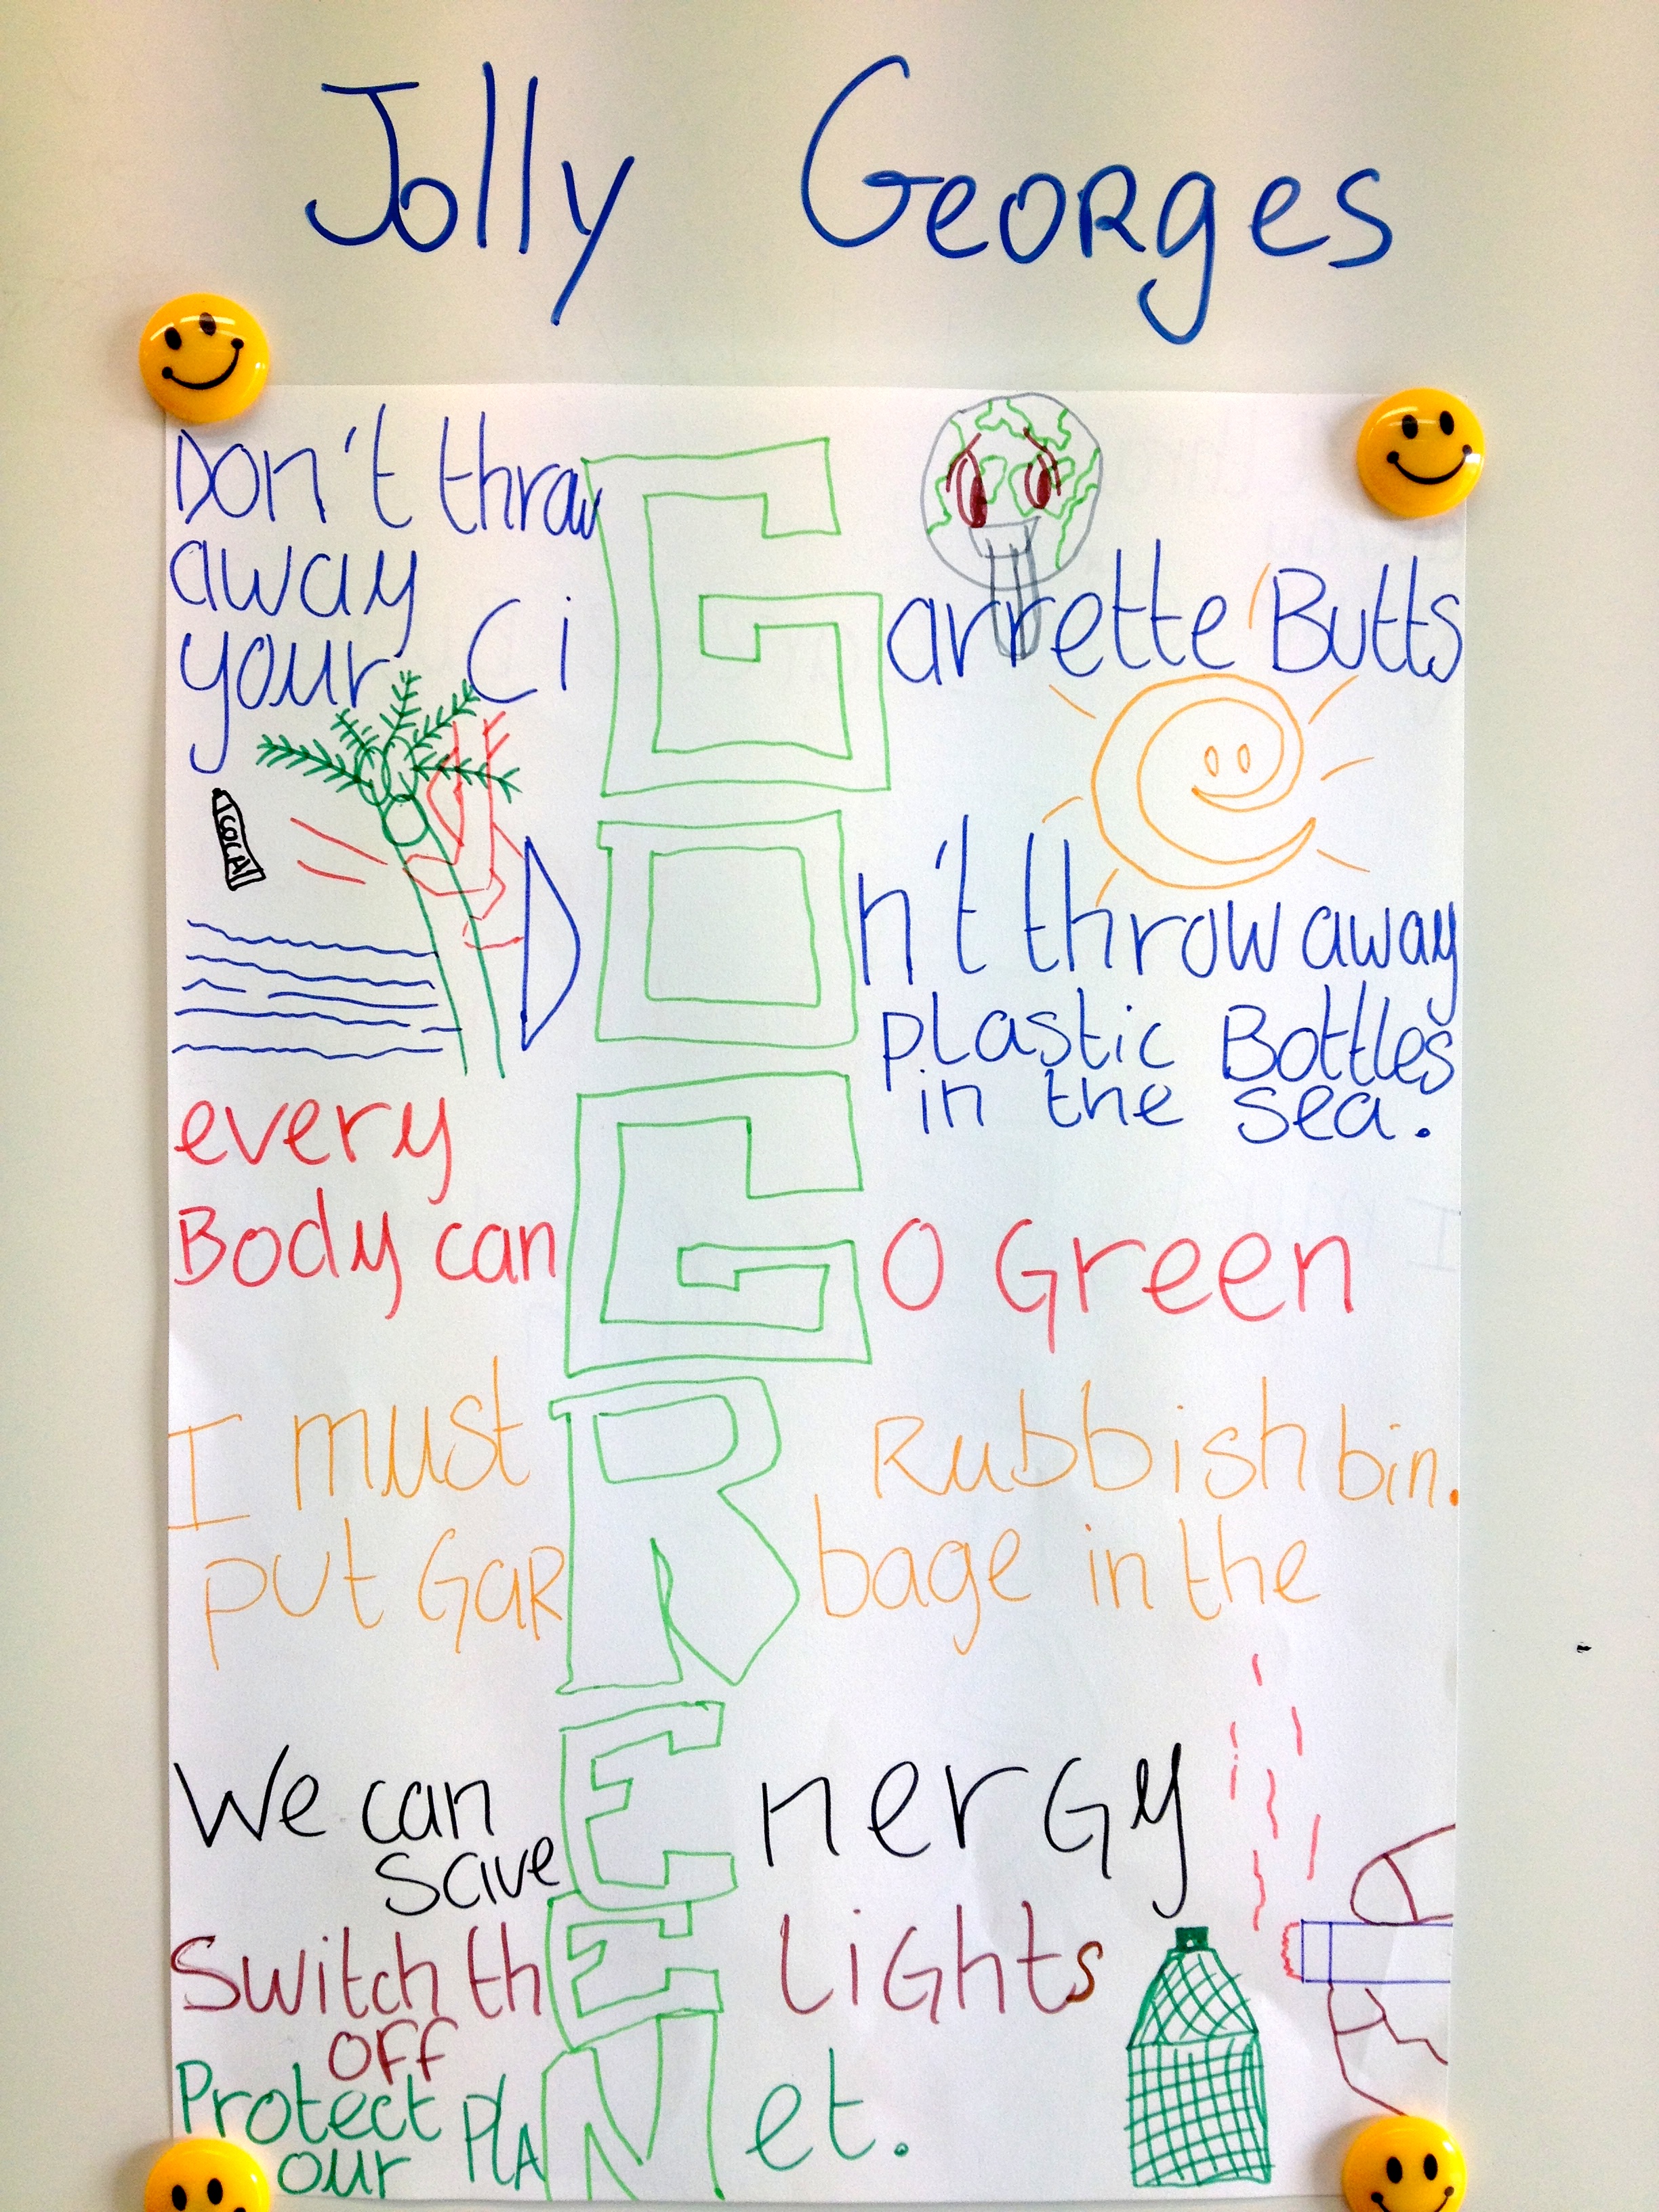 Jolly Georges
Don't thraw
away
your CiGarrette Butts
COCA
DOn't throw away
plastic Bottles
in the sea.
every
Body can GO Green
I must Rubbish bin.
put GaRRbage in the
We can
save EnerGy
Switch thE LiGhts
OFF
Protect
our PlANet.